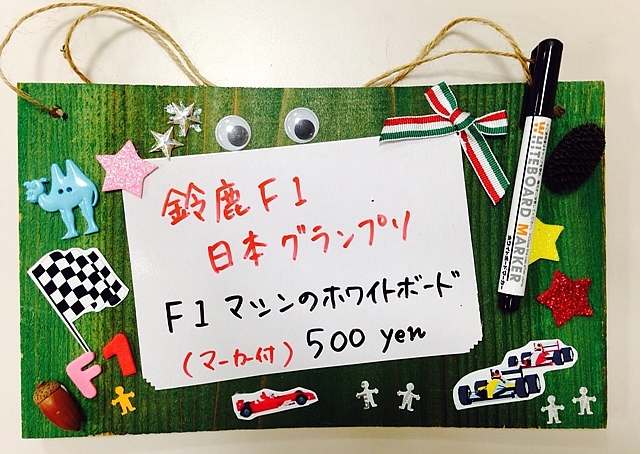 鈴鹿F1
日本グランプリ
F1マシンのホワイトボード
(マーカー付) 500 yen
F1
WHITEBOARD MARKER